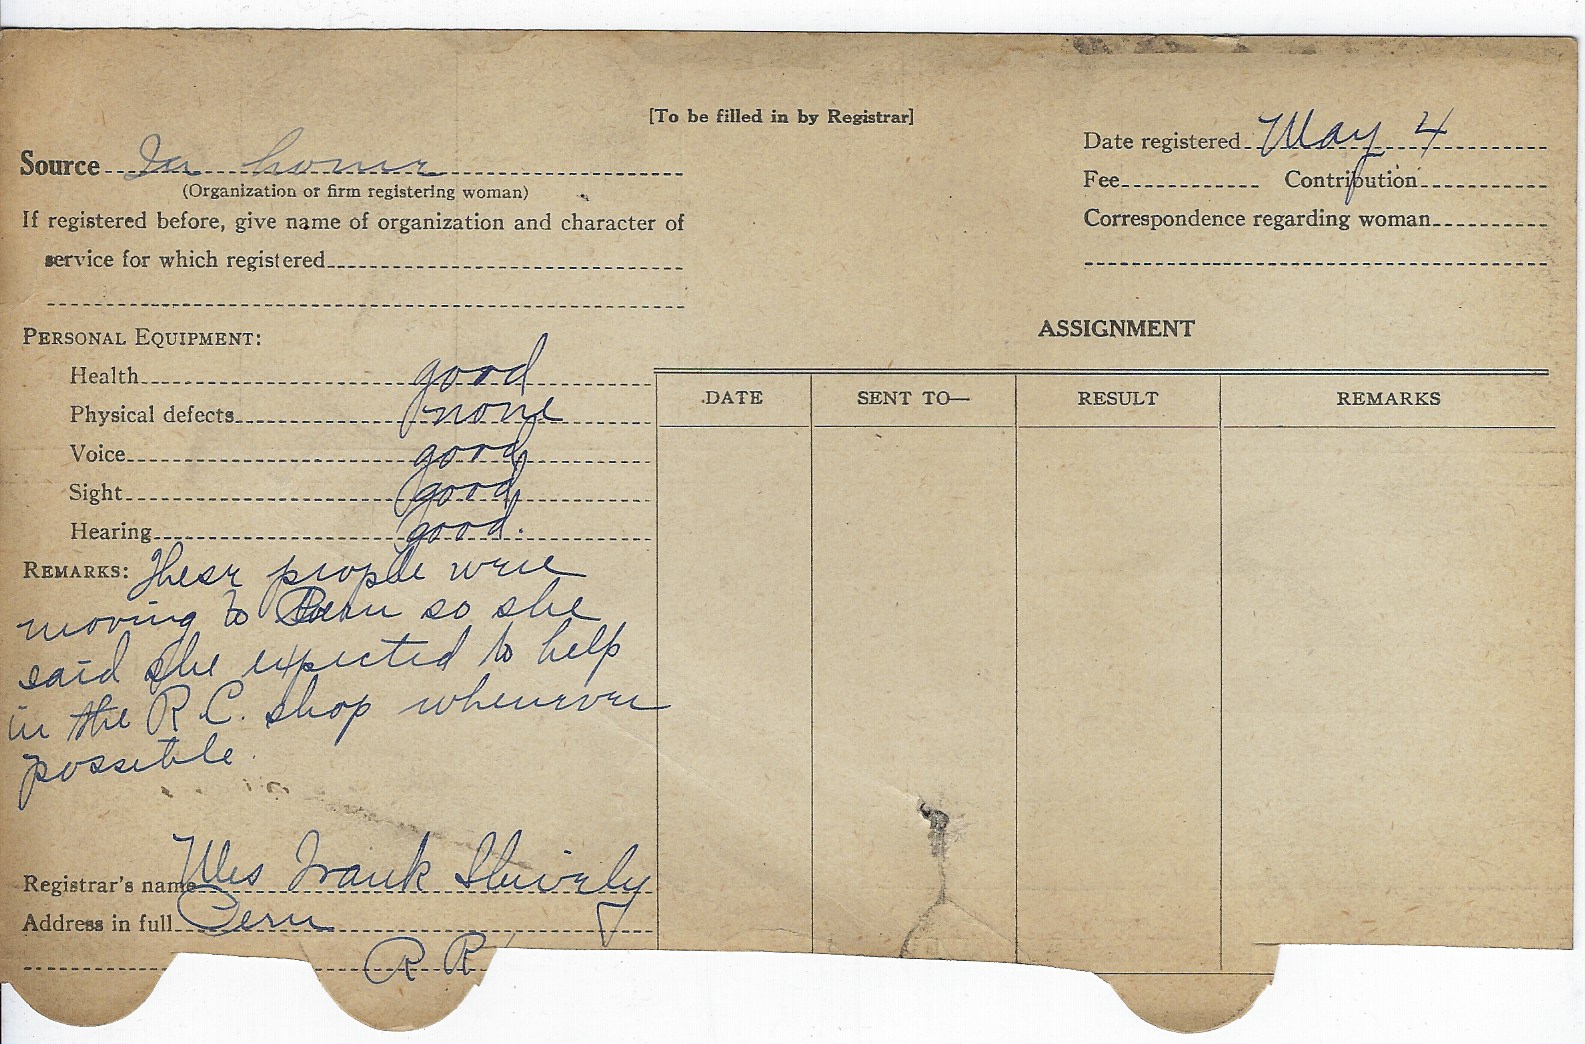 [To be filled in by Registrar]
Source In home
(Organization or firm registering woman)
If registered before, give name of organization and character of
service for which registered
Date registered May 4
Fee Contribution
Correspondence regarding woman
PERSONAL EQUIPMENT:
Health good
Physical defects none
Voice good
Sight good
Hearing good.
ASSIGNMENT
DATE SENT TO— RESULT REMARKS
REMARKS: These people were
moving to Peru so she
said she expected to help
in the R.C. shop whenever
possible.
Registrar's name Mrs Frank Shively
Address in full Peru
R R